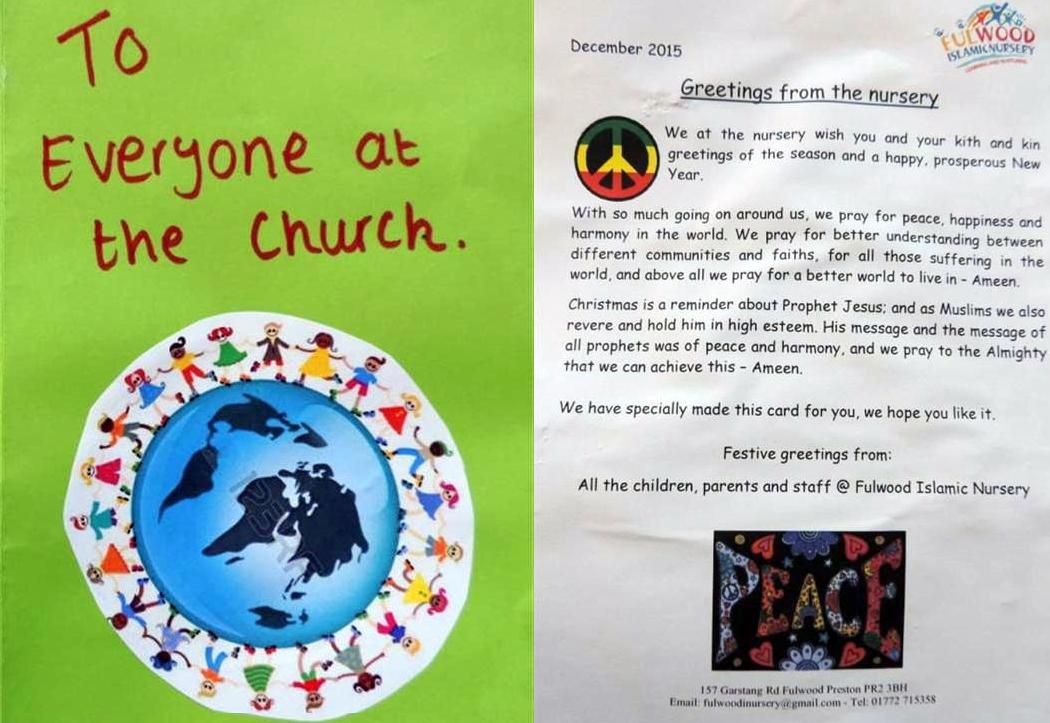 To
Everyone at
the Church.
December 2015
FULWOOD
ISLAMIC NURSERY
LEARNING AND NURTURING
Greetings from the nursery
We at the nursery wish you and your kith and kin
greetings of the season and a happy, prosperous New
Year.
With so much going on around us, we pray for peace, happiness and
harmony in the world. We pray for better understanding between
different communities and faiths, for all those suffering in the
world, and above all we pray for a better world to live in - Ameen.
Christmas is a reminder about Prophet Jesus; and as Muslims we also
revere and hold him in high esteem. His message and the message of
all prophets was of peace and harmony, and we pray to the Almighty
that we can achieve this – Ameen.
We have specially made this card for you, we hope you like it.
Festive greetings from:
All the children, parents and staff @ Fulwood Islamic Nursery
PEACE
157 Garstang Rd Fulwood Preston PR2 3BH
Email: fulwoodinursery@gmail.com - Tel: 01772 715358